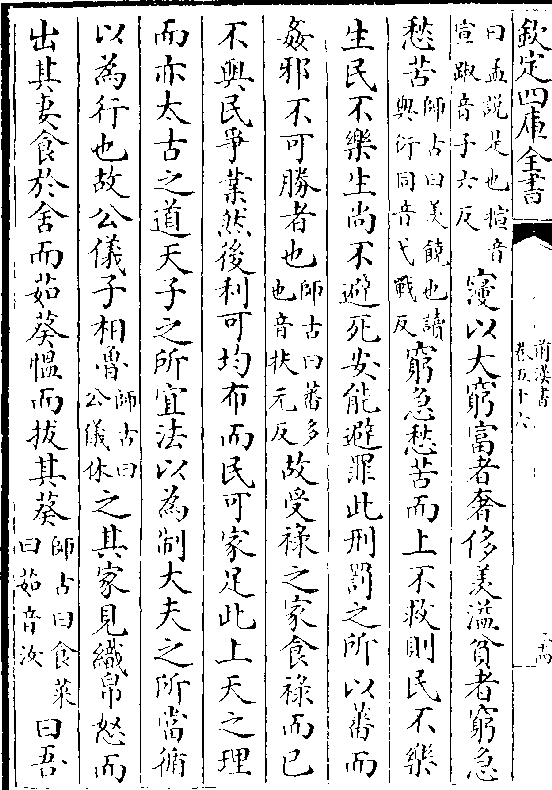 欽定四庫全書
前漢書
卷五十六
曰孟說是也朘音
宣踧音子六反
寖以大窮富者奢侈羡溢貧者窮急
愁苦
師古曰羡饒也讀
與衍同音弋戰反
窮急愁苦而上不救則民不樂
生民不樂生尚不避死安能避罪此刑罰之所以蕃而
姦邪不可勝者也
師古曰蕃多
也音扶元反
故受祿之家食祿而已
不與民爭業然後利可均布而民可家足此上天之理
而亦太古之道天子之所宜法以為制大夫之所當循
以為行也故公儀子相魯
師古曰
公儀休
之其家見織帛怒而
出其妻食於舍而茹葵愠而拔其葵
師古曰食菜
曰茹音汝
曰吾